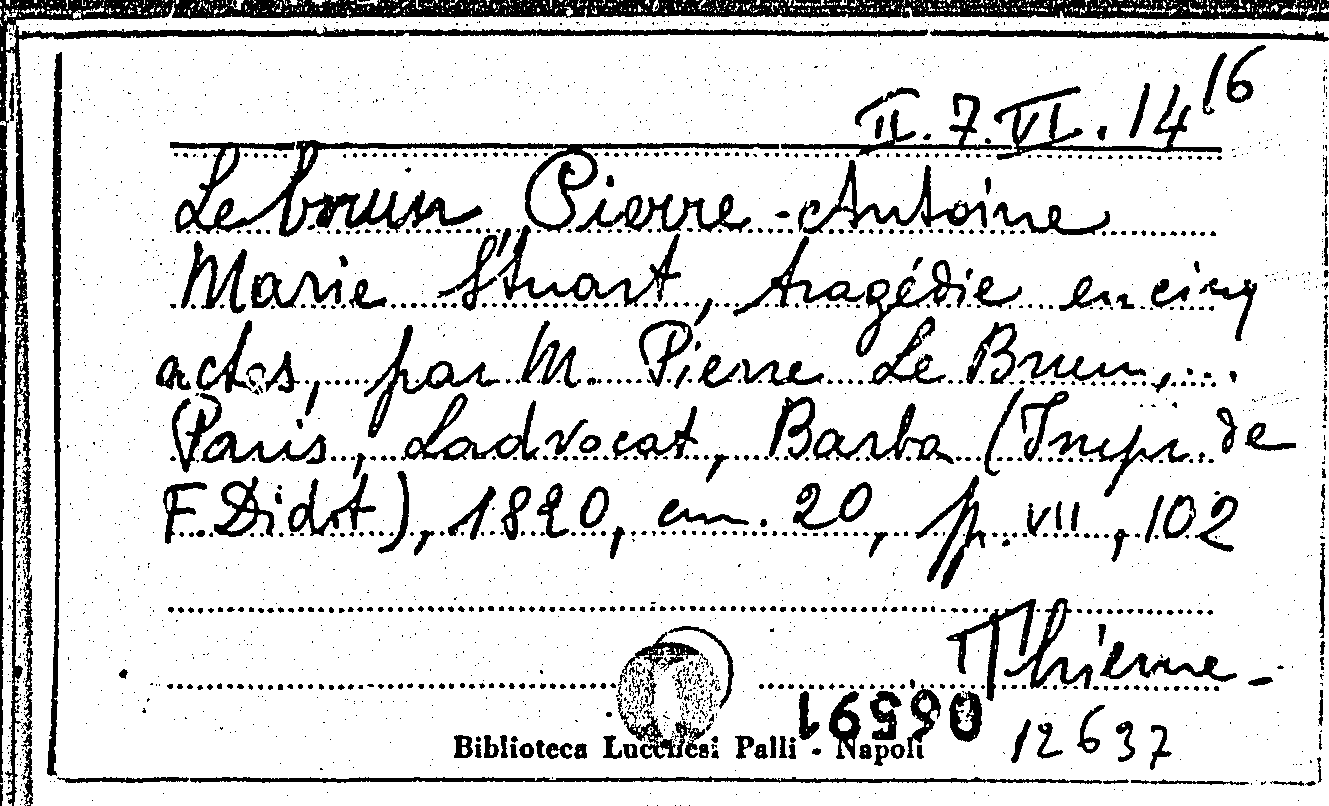 II. 7. VI. 14 16
Lebrun Pierre-Antoine
Marie Stuart, tragédie en cinq
actes, par M. Pierre Le Brun,...
Paris, Ladvocat, Barba (Impr. de
F. Didot), 1820, cm. 20, pp. VII, 102
Thieme-
06591
12637
Biblioteca Lucchesi Palli - Napoli